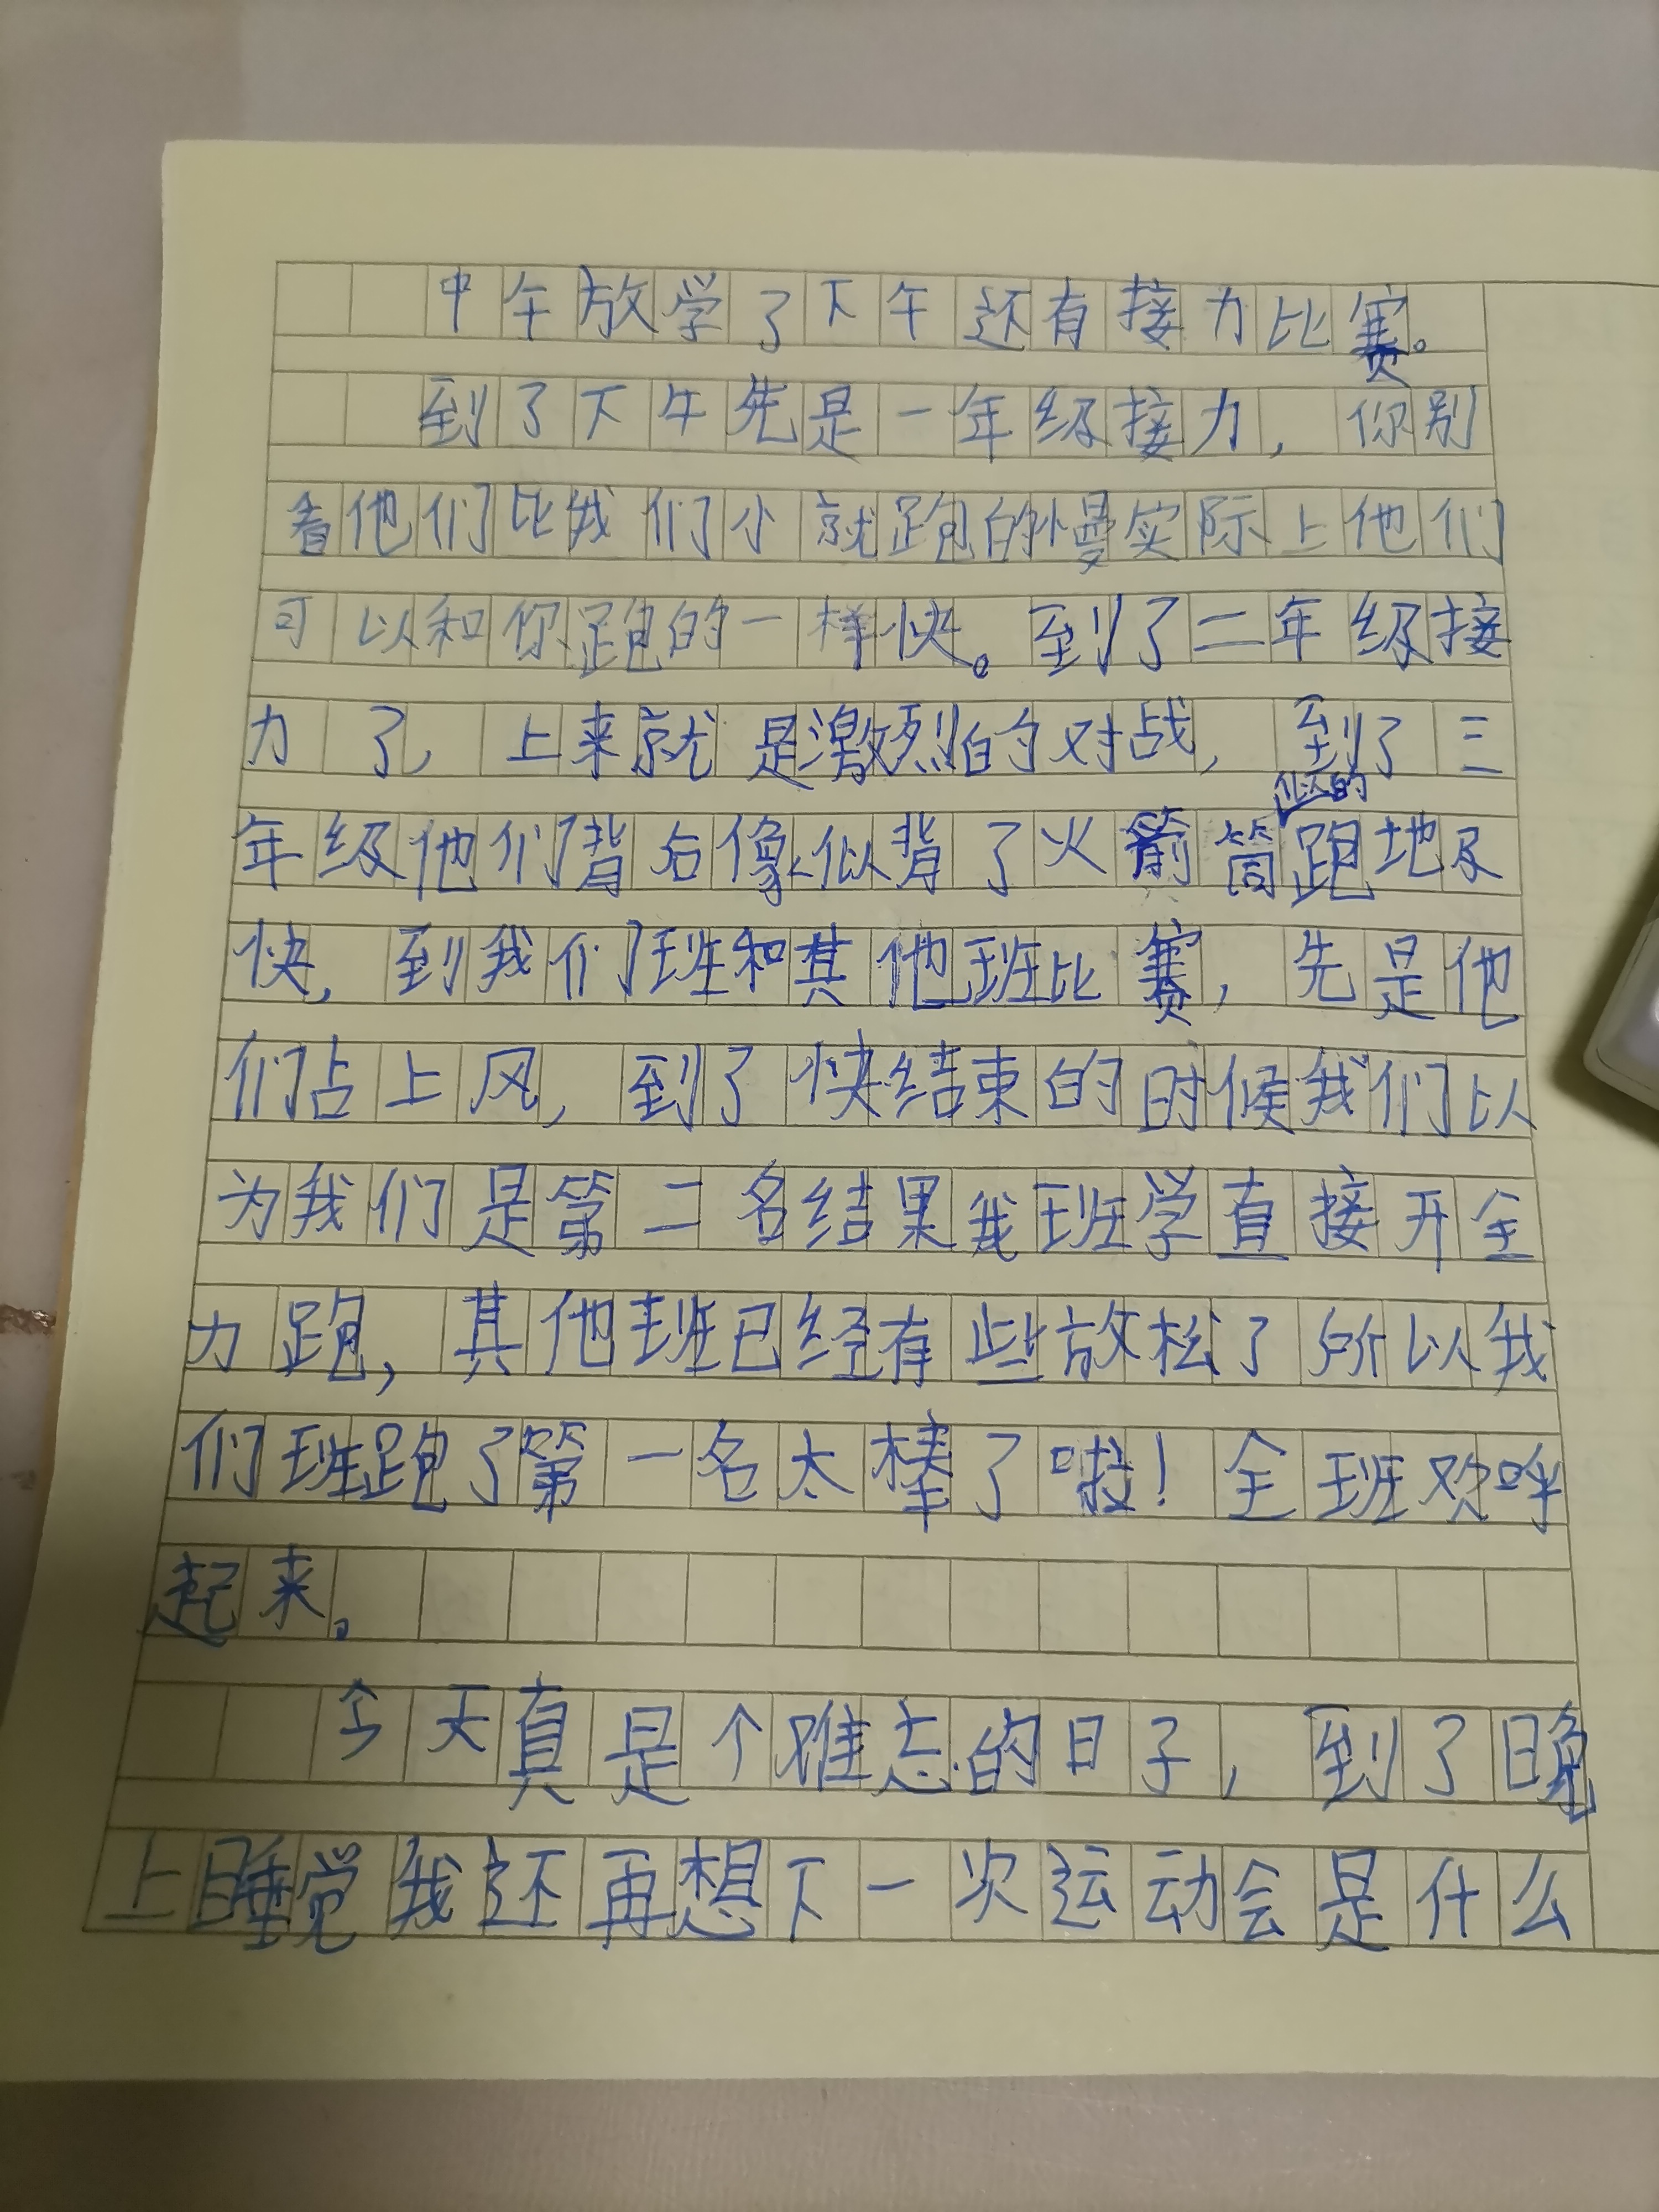 中午放学了下午还有接力比赛。
到了下午先是一年级接力，你别
看他们比我们小就跑的慢实际上他们
可以和你跑的一样快。到了二年级接
力了，上来就是激烈的对战，到了三
似的
年级他们背后像似背了火箭筒跑地及
快，到我们班和其他班比赛，先是他
们占上风，到了快结束的时候我们以
为我们是第二名结果我班学直接开全
力跑，其他班已经有些放松了所以我
们班跑了第一名太棒了啦！全班欢呼
起来。
今天真是个难忘的日子，到了晚
上睡觉我还再想下一次运动会是什么